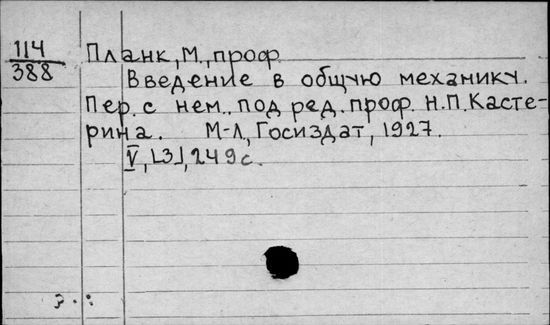 114
388
Планк, М., проф.
Введение в общую механику.
Пер. с нем. под ред. проф. Н.П. Касте-
рина. М-Л, Госиздат, 1927.
V, [3], 249 с.